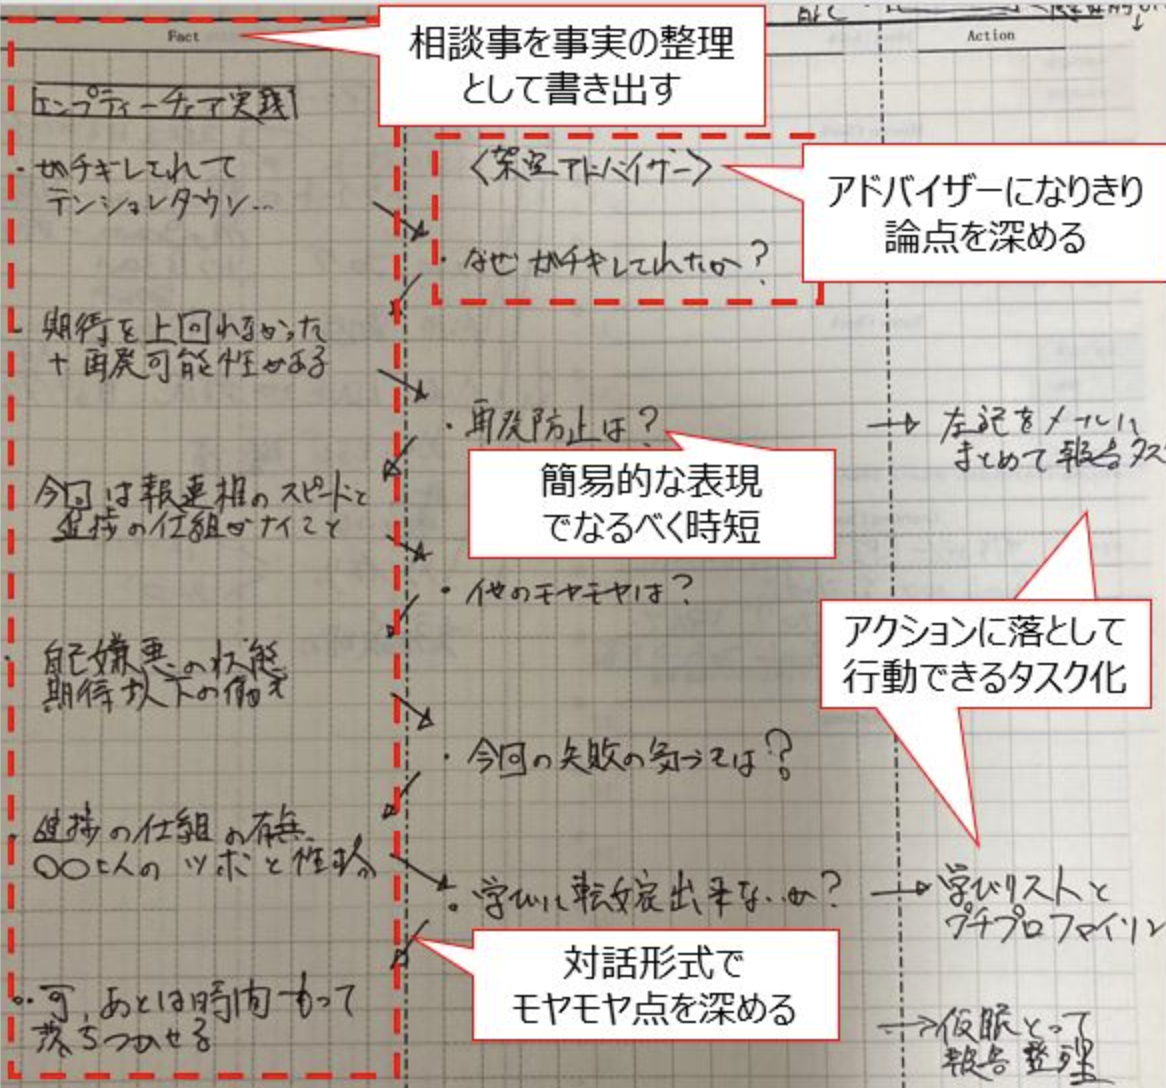 Fact
相談事を事実の整理
として書き出す
Action
エンプティーチェア実践
・ガチギレされて
テンションダウン…
〈架空アドバイザー〉
アドバイザーになりきり
論点を深める
・なぜガチギレされたか?
・期待を上回れなかった
+再発可能性がある
・再発防止は?
→左記をメールに
まとめて報告タス
簡易的な表現
でなるべく時短
今回は報連相のスピードと
進捗の仕組がナイこと
・他のモヤモヤは?
アクションに落として
行動できるタスク化
・自己嫌悪の状態
期待以下の働き
・今回の失敗の気づきは?
・進捗の仕組の有無
〇〇さんのツボと性格
・学びに転嫁出来ないか?
→学びリストと
プチプロファイリン
対話形式で
モヤモヤ点を深める
・可、あとは時間もって
落ちつかせる
→仮眠とって
報告整理